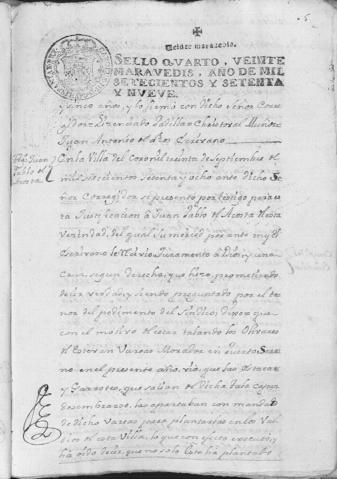 Veinte maravedis.
SELLO QVARTO, VEINTE
MARAVEDIS, AÑO DE MIL
SETECIENTOS Y SETENTA
Y NUEVE.
y cinco años, y lo firmó con dicho señor Corre
Juan Antonio
En la Villa del Coronil treinta de Septiembre de
mil setecientos setenta y ocho ante dicho Se
ñor Corregidor se presentó por testigo para
Justificacion a Juan Pablo de Acosta de esta
Vecindad, del qual su merced por ante my el
Escrivano recivio Juramento a Dios y una
Cruz, segun derecho, que hizo, prometiendo
decir verdad, y siendo preguntado por el te
nor del pedimento del Sindico; dixo: que
con el motivo de estar talando los Olivares
de Estevan Vargas Morador en puerto Se
rrano en el presente año, vio, que las Estacas
y Garrotes, que salian de dicha tala
desembarazo, las apartaban con mandato
de dicho Vargas para plantarlas en los Val
dios de esta Villa, lo que con efecto executó, y
ha oido decir, que no solo esta ha plantado